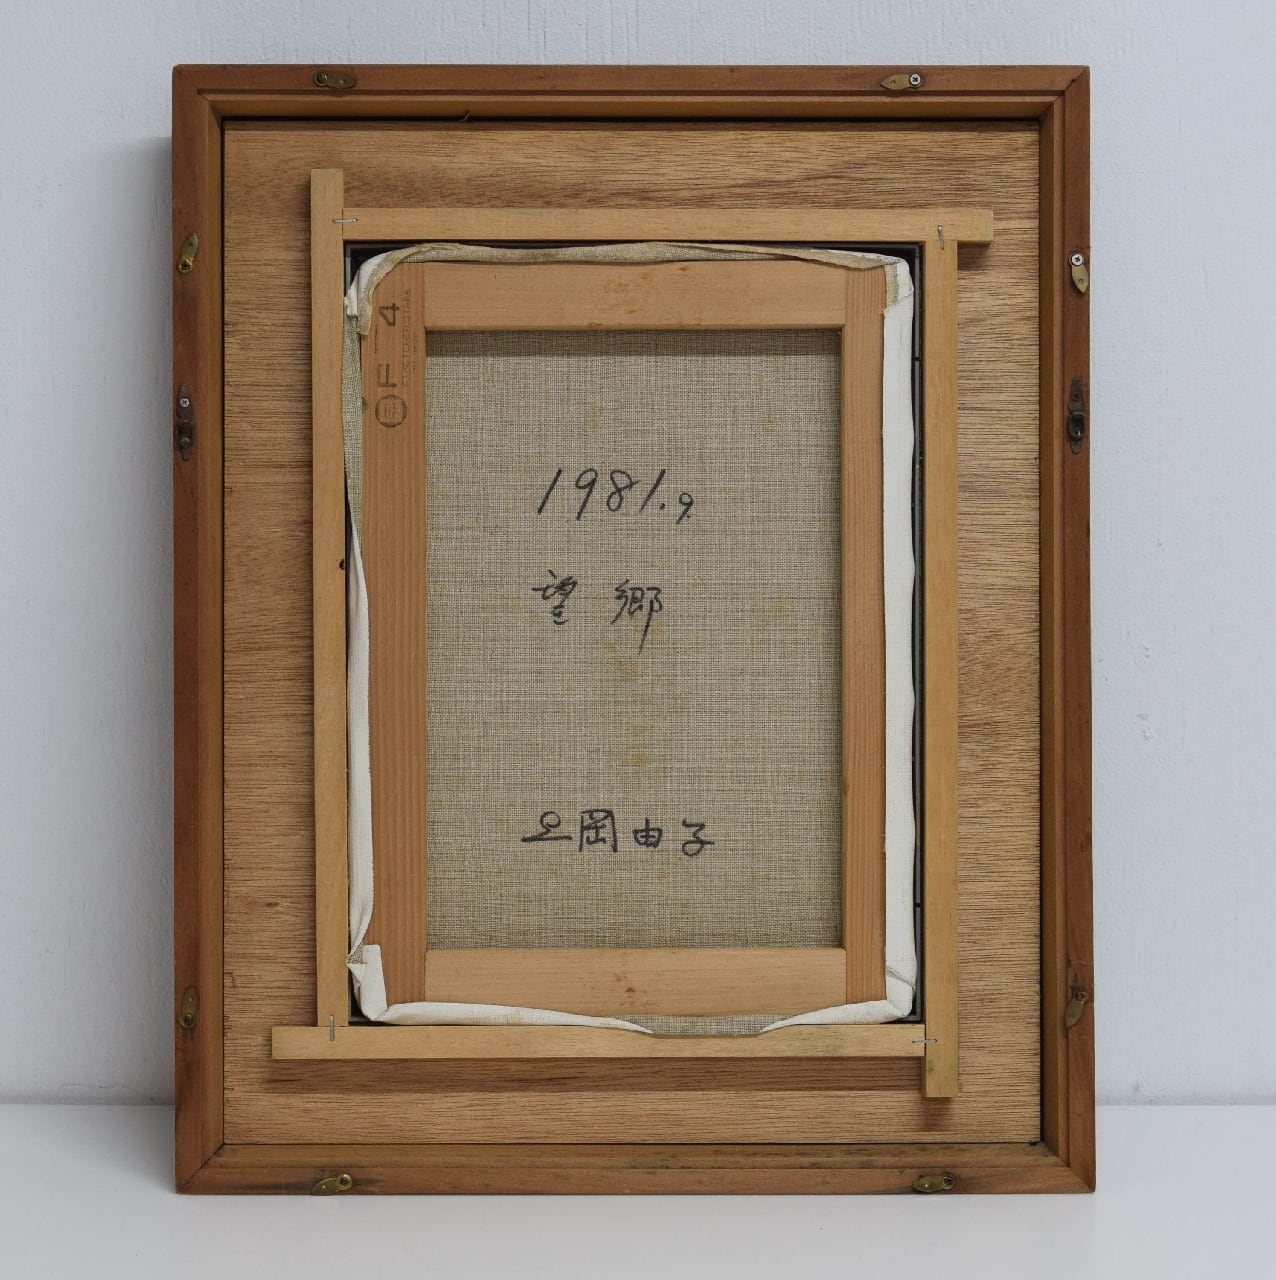 F 4
1981.9
望 郷
上岡由子